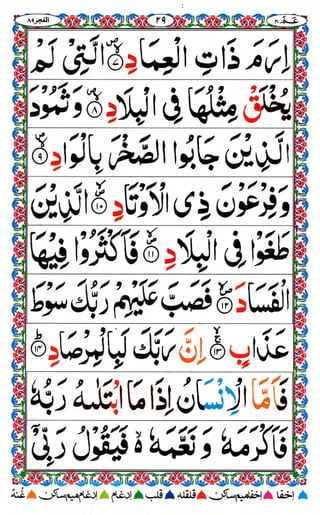 الفجر ٨٩ ٢٩ عمّ ٣٠
اِرَمَ ذَاتِ الْعِمَادِ ۝٧ الَّتِیْ لَمْ
یُخْلَقْ مِثْلُهَا فِی الْبِلَادِ ۝٨ وَثَمُوْدَ
الَّذِیْنَ جَابُوا الصَّخْرَ بِالْوَادِ ۝٩
وَفِرْعَوْنَ ذِی الْاَوْتَادِ ۝١٠ الَّذِیْنَ
طَغَوْا فِی الْبِلَادِ ۝١١ فَاَكْثَرُوْا فِیْهَا
الْفَسَادَ ۝١٢ فَصَبَّ عَلَیْهِمْ رَبُّكَ سَوْطَ
عَذَابٍ ۝١٣ اِنَّ رَبَّكَ لَبِالْمِرْصَادِ ۝١٤
فَاَمَّا الْاِنْسَانُ اِذَا مَا ابْتَلٰىهُ رَبُّهٗ
فَاَكْرَمَهٗ وَنَعَّمَهٗ ۙ۬ فَیَقُوْلُ رَبِّیْۤ
اخفا اخفامیم ساکن قلقله قلب ادغام ادغام میم ساکن غنة